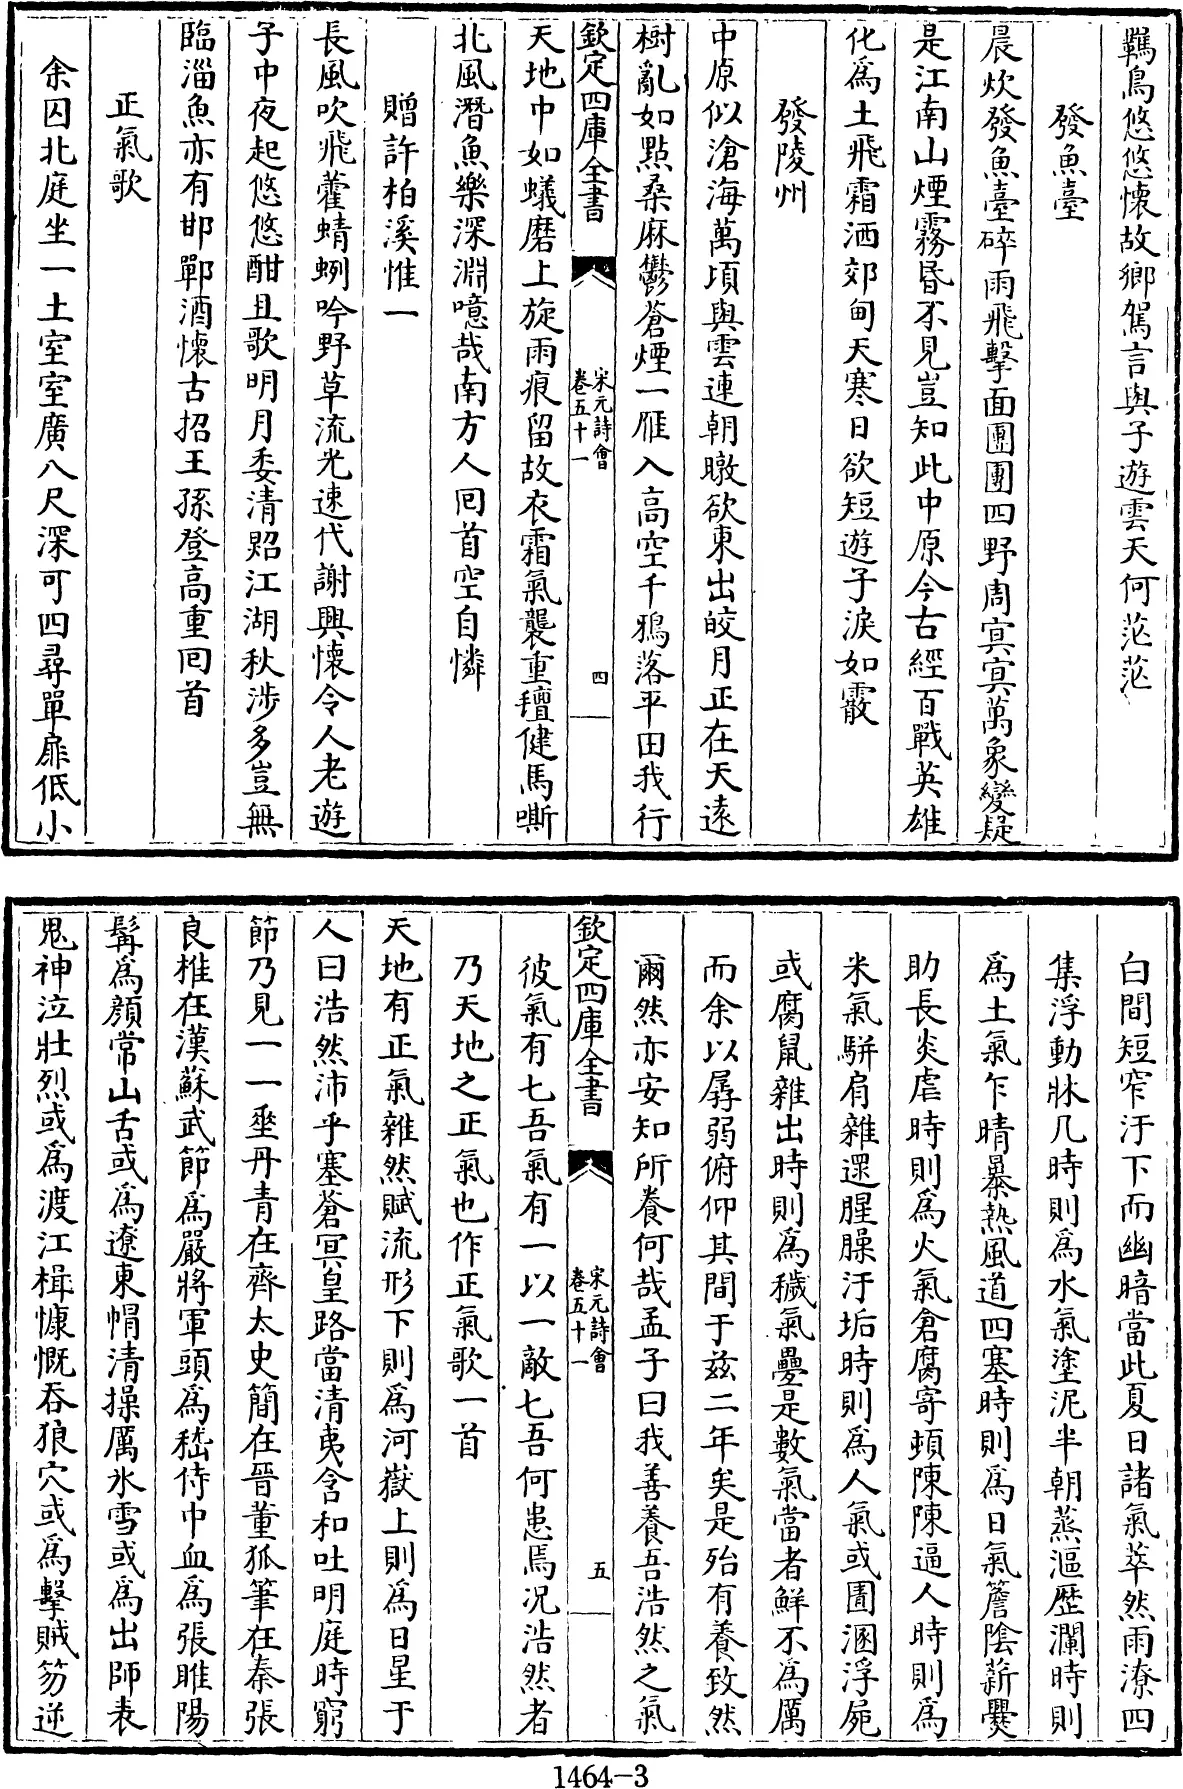 羈鳥悠悠懷故鄉駕言與子遊雲天何茫茫
發魚臺
晨炊發魚臺碎雨飛擊面團團四野周寘寘萬象變疑
是江南山煙霧昏不見豈知此中原今古經百戰英雄
化為土飛霜洒郊甸天寒日欲短遊子淚如霰
發陵州
中原似滄海萬頃與雲連朝暾欲東出皎月正在天逺
樹亂如點桑麻鬱蒼煙一雁入高空千鴉落平田我行
欽定四庫全書
宋元詩會
卷五十一
四
天地中如蟻磨上旋雨痕留故衣霜氣襲重氊健馬嘶
北風潛魚樂深淵噫哉南方人囘首空自憐
贈許柏溪惟一
長風吹飛藿蜻蛚吟野草流光速代謝興懷令人老遊
子中夜起悠悠酣且歌明月委清照江湖秋涉多豈無
臨淄魚亦有邯鄲酒懷古招王孫登高重囘首
正氣歌
余囚北庭坐一土室室廣八尺深可四尋單扉低小
白間短窄汙下而幽暗當此夏日諸氣萃然雨潦四
集浮動牀几時則為水氣塗泥半朝蒸漚歴瀾時則
為土氣乍晴暴熱風道四塞時則為日氣簷陰薪爨
助長炎虐時則為火氣倉腐寄頓陳陳逼人時則為
米氣駢肩雜遝腥臊汙垢時則為人氣或圊溷浮屍
或腐鼠雜出時則為穢氣疊是數氣當者鮮不為厲
而余以孱弱俯仰其間于兹二年矣是殆有養致然
爾然亦安知所養何哉孟子曰我善養吾浩然之氣
欽定四庫全書
宋元詩會
卷五十一
五
彼氣有七吾氣有一以一敵七吾何患焉况浩然者
乃天地之正氣也作正氣歌一首
天地有正氣雜然賦流形下則為河嶽上則為日星于
人曰浩然沛乎塞蒼冥皇路當清夷含和吐明庭時窮
節乃見一一埀丹青在齊太史簡在晉董狐筆在秦張
良椎在漢蘇武節為嚴將軍頭為嵇侍中血為張睢陽
髯為顔常山舌或為遼東帽清操厲氷雪或為出師表
鬼神泣壯烈或為渡江楫慷慨吞狼穴或為擊賊笏逆
1464-3